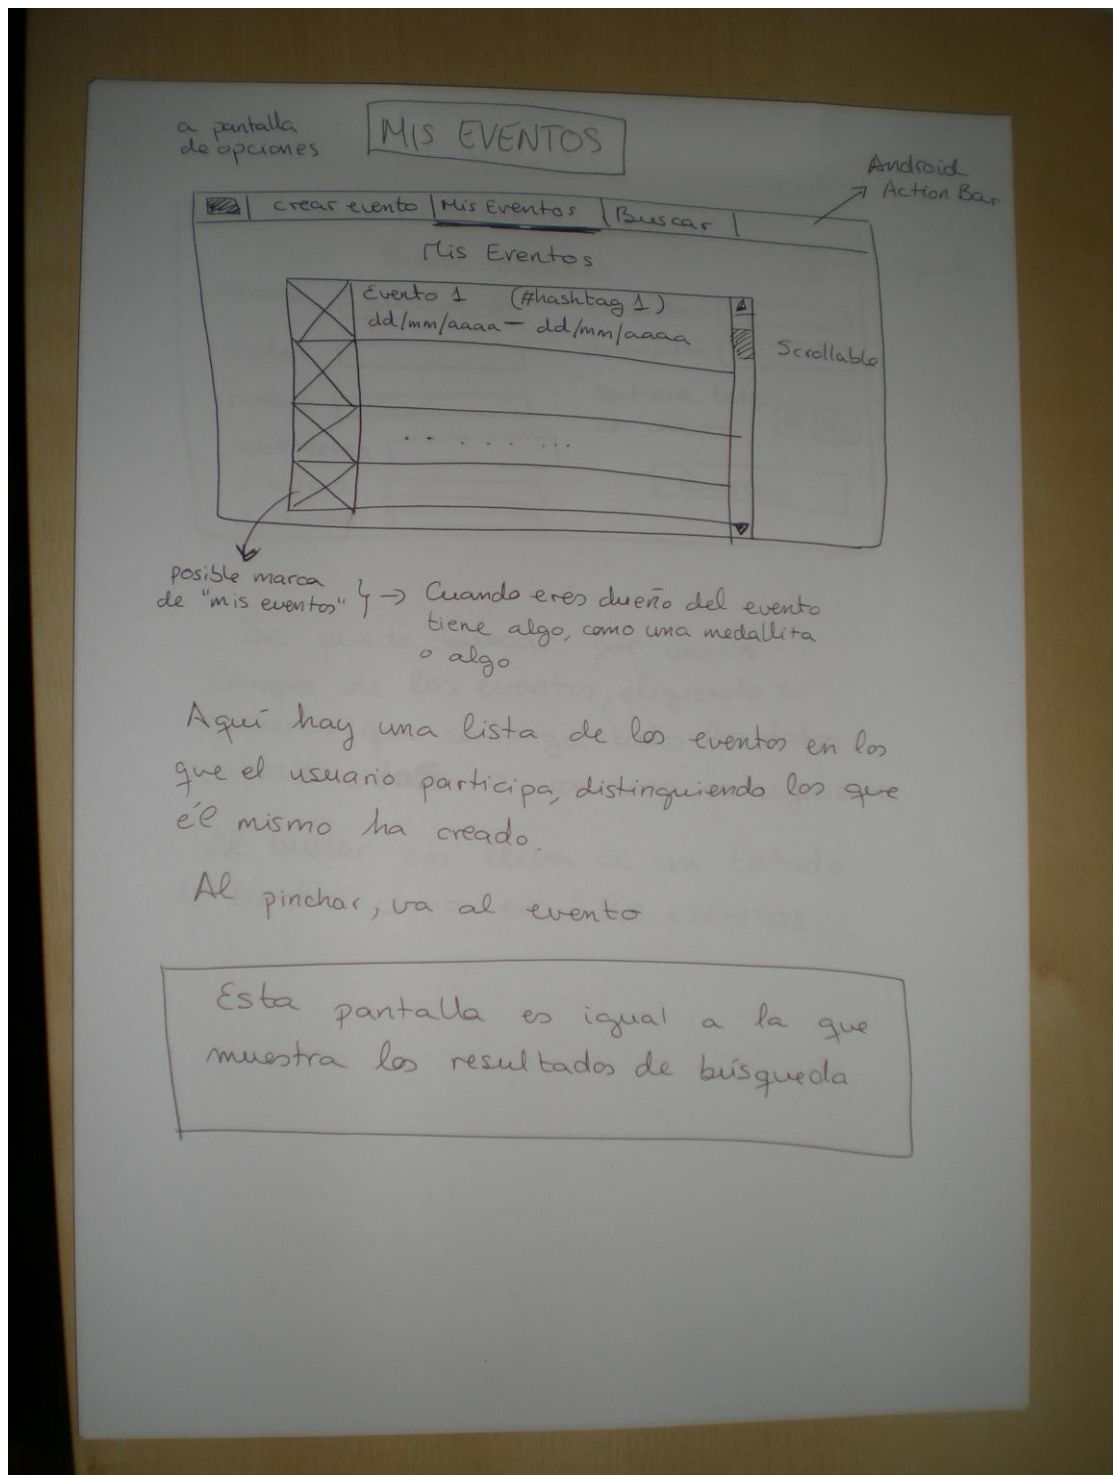 a pantalla
de opciones
MIS EVENTOS
Android
Action Bar
crear evento Mis Eventos Buscar
Mis Eventos
Evento 1 (#hashtag 1)
dd/mm/aaaa - dd/mm/aaaa
Scrollable
. . . . . ...
posible marca
de "mis eventos" } → Cuando eres dueño del evento
tiene algo, como una medallita
o algo
Aquí hay una lista de los eventos en los
que el usuario participa, distinguiendo los que
él mismo ha creado.
Al pinchar, va al evento
Esta pantalla es igual a la que
muestra los resultados de búsqueda